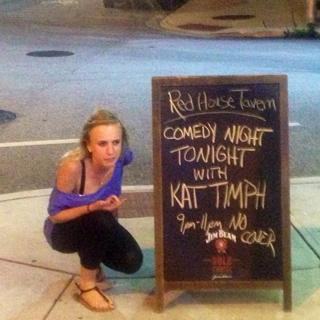 Red House Tavern
COMEDY NIGHT
TONIGHT
WITH
KAT TIMPH
9pm-11pm NO
COVER
JIM BEAM